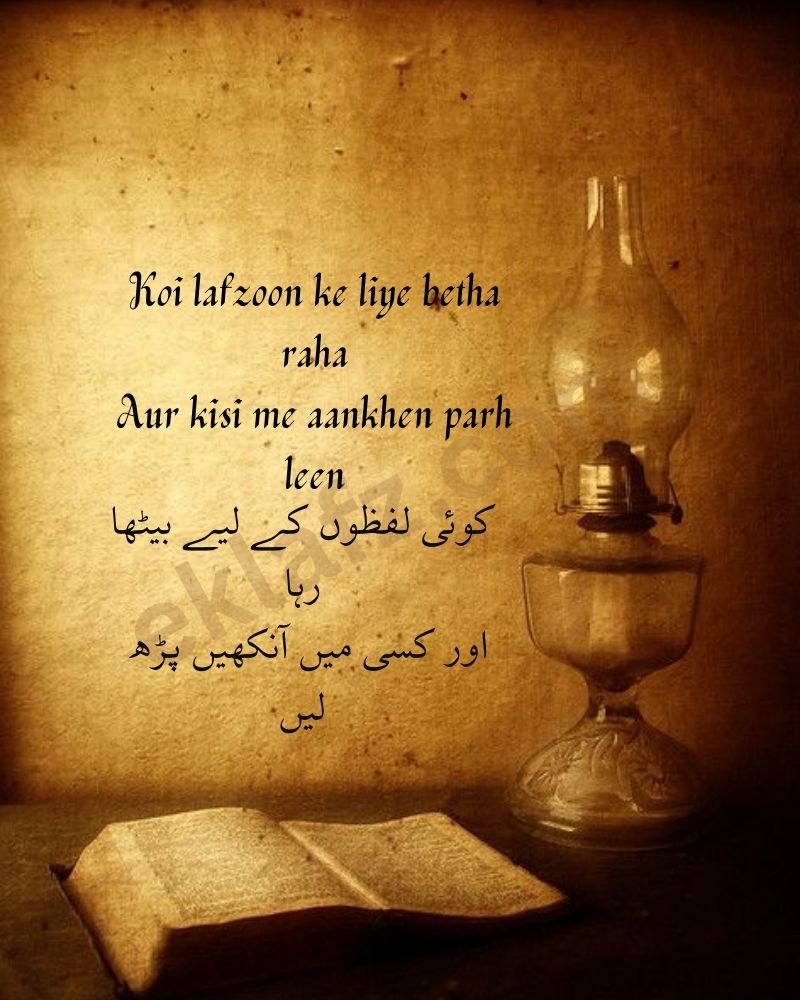 Koi lafzoon ke liye betha
raha
Aur kisi me aankhen parh
leen
کوئی لفظوں کے لیے بیٹھا
رہا
اور کسی میں آنکھیں پڑھ
لیں
eklafz.com